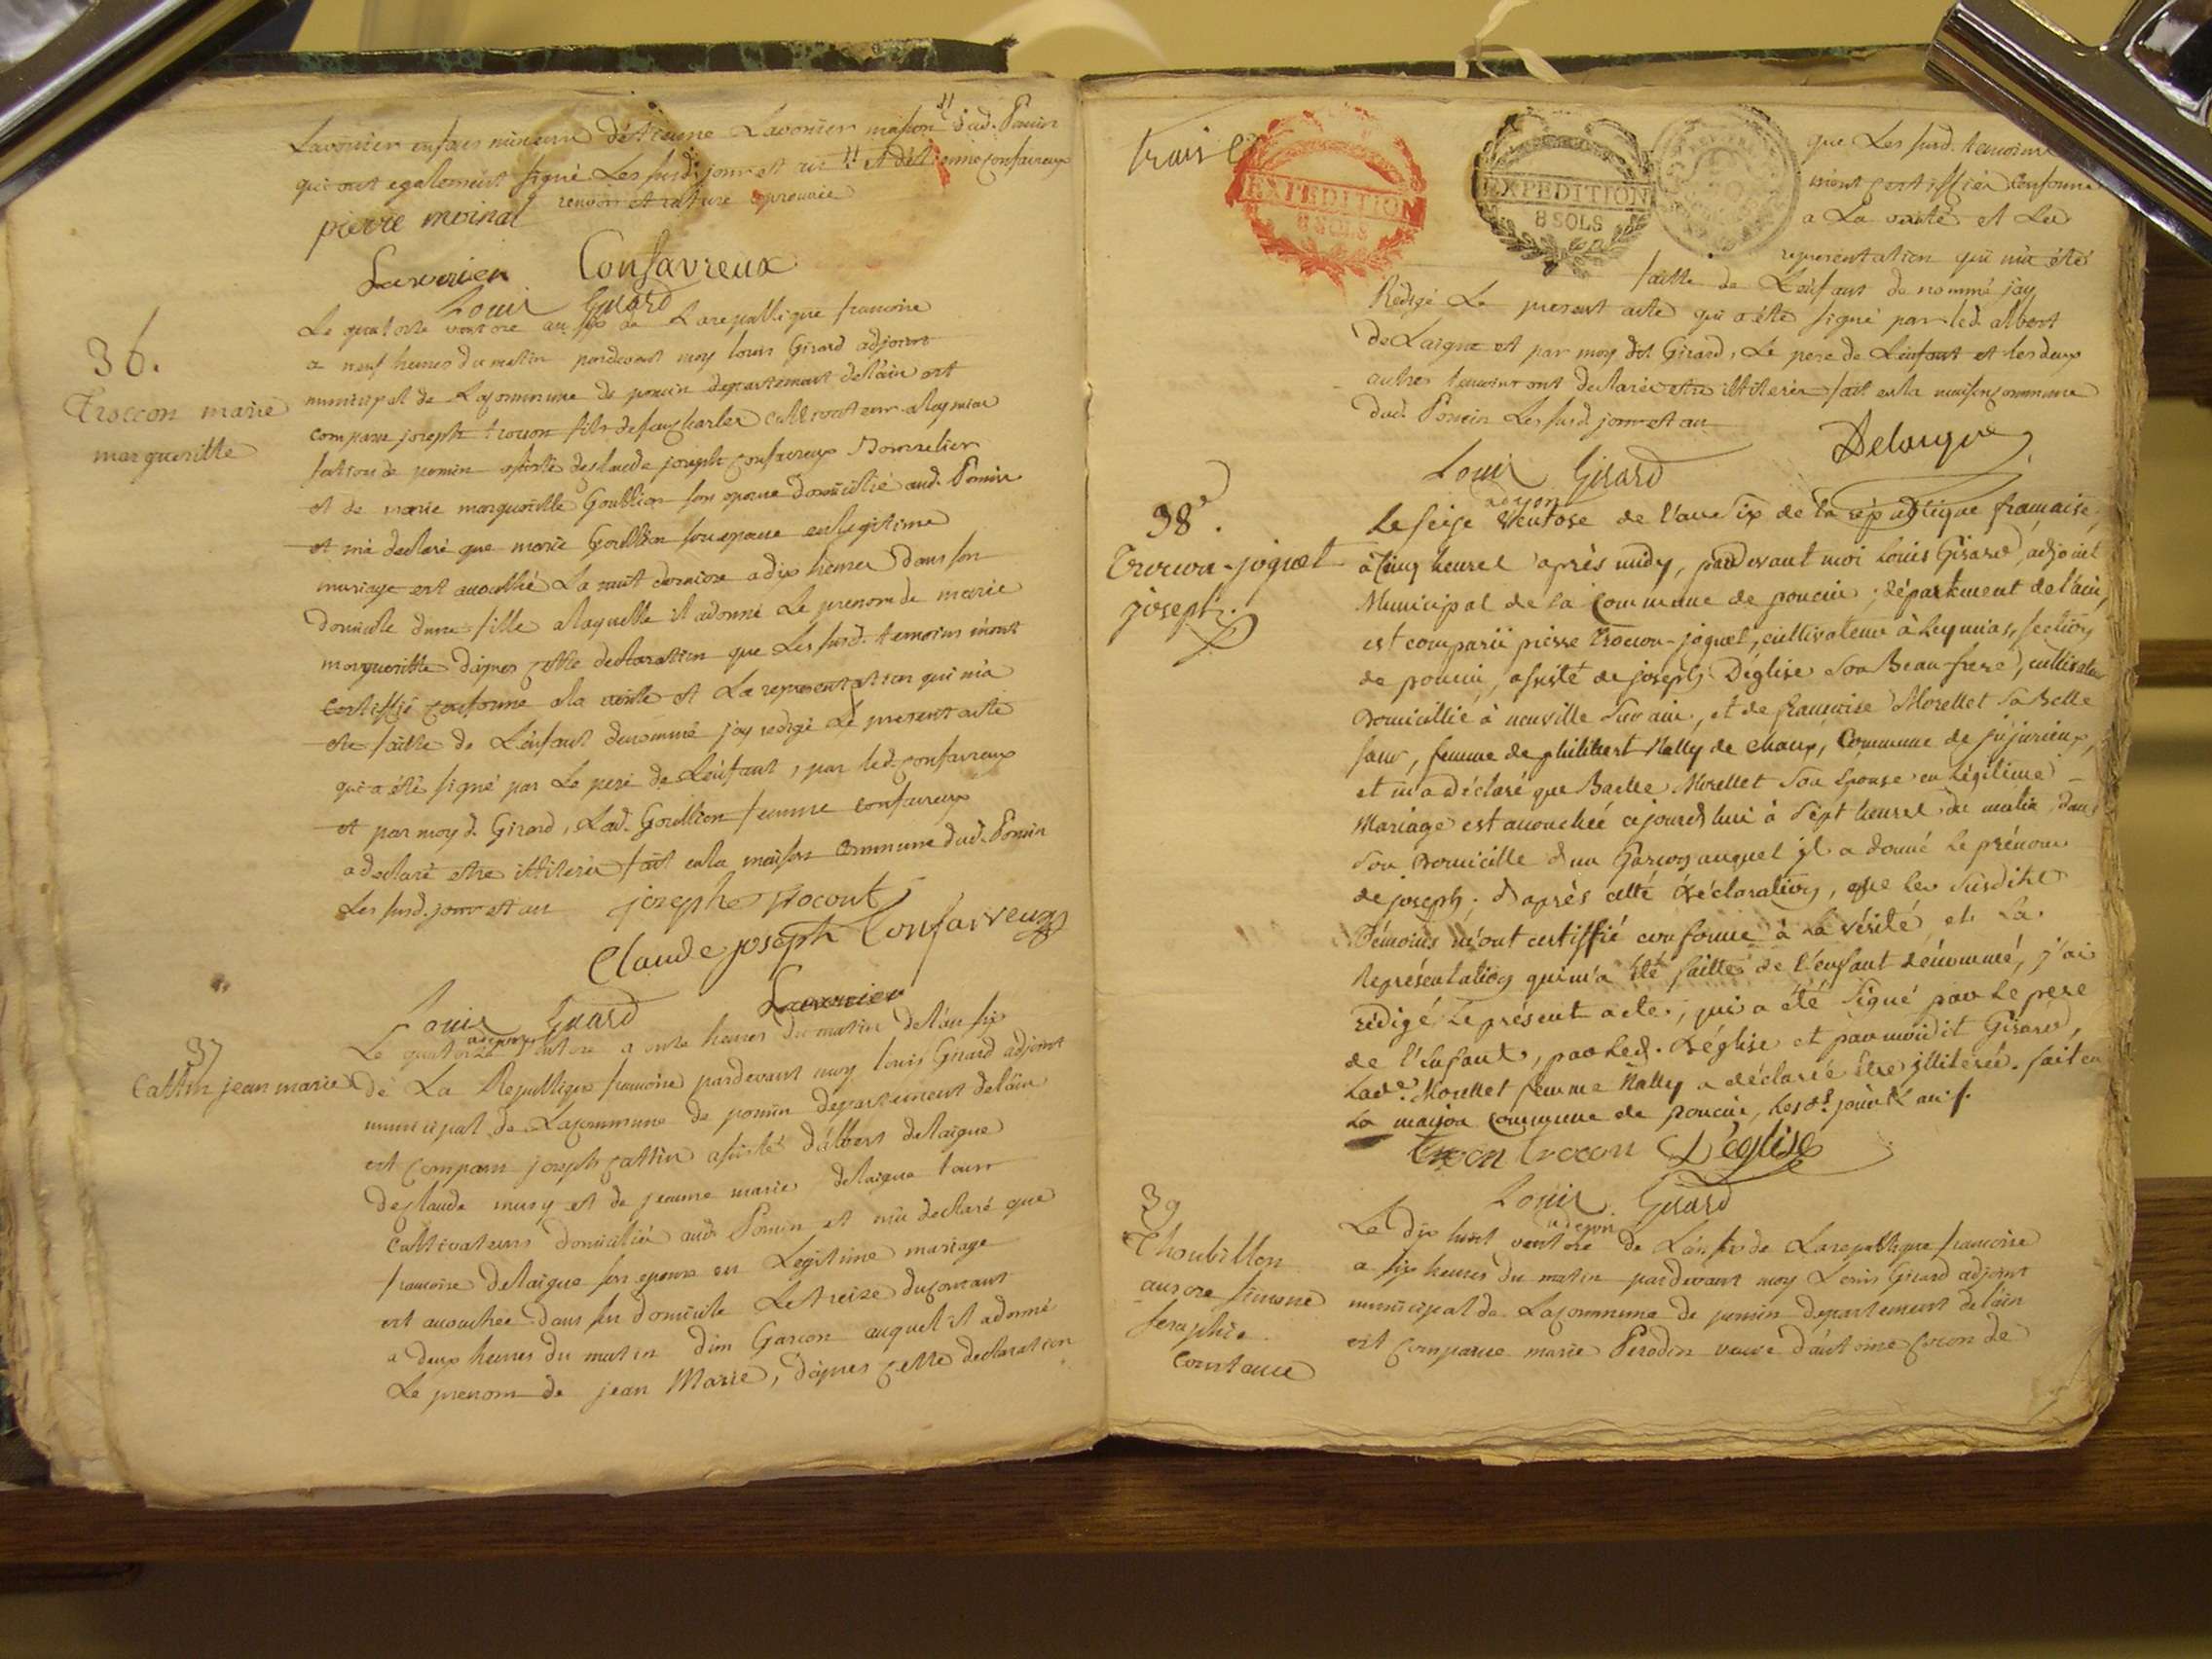 Lavorier enfans mineurs d'étienne Lavorier masson // dud. Poncin
qui ont egalement signé Les susd. jour et // et d'étienne Confavreux
renvoi et rature aprouvée
pierre moinat
Lavorier Confavreux
Louis Girard
36.
Troccon marie
margueritte
Le quatorze ventose an six de La republique francoise
a neuf heures du matin pardevant moy louis Girard adjoint
municipal de La commune de poncin departement de l'ain est
comparu joseph trocon fils de feu charles cultivateur a leymiat
section de poncin assisté de claude joseph confavreux Bourrelier
et de marie margueritte Goullion son epouse domicilié aud. Poncin
et m'a declaré que marie Goullion son epouse en legitime
mariage est accouchée La nuit derniere a dix heures dans son
domicile d'une fille a laquelle il a donné Le prenom de marie
margueritte d'apres cette declaration que Les susd. temoins m'ont
certiffié conforme a la verité et La representation qui m'a
eté faitte de L'enfant denommé j'ay redigé Le present acte
qui a été signé par Le pere de L'enfant, par led. confavreux
et par moy d. Girard, Lad. Goullion femme confavreux
a declaré etre illiterée fait en la maison commune dud. Poncin
Les susd. jour et an
joseph trocont
Claude joseph Confavreux
Louis Girard
Lavorier
adjoint
37
Cattin jean marie
Le quatorze ventose a onze heures du matin de l'an six
de La Republique francoise pardevant moy louis Girard adjoint
municipal de La commune de poncin departement de l'ain
est comparu joseph cattin assisté d'albert delaigue
de claude musy et de jeanne marie delaigue tous
cultivateurs domicilié aud. Poncin et m'a declaré que
francoise delaigue son epouse en Legitime mariage
est accouchée dans son domicile Le treize du courant
a deux heures du matin d'un Garcon auquel il a donné
Le prenom de jean Marie, d'apres cette declaration
EXPEDITION
8 SOLS
EXPEDITION
8 SOLS
que Les susd. temoins
m'ont certiffiée conforme
a La verité et La
representation qui m'a été
faitte de L'enfant denommé j'ay
Redigé Le present acte qui a été signé par led. albert
deLaigue et par moy dit Girard, Le pere de L'enfant et les deux
autres temoins ont declarée etre illiterée fait en la maison commune
dud. Poncin Les susd. jour et an
Delaigue
Louis Girard
adjoint
38e.
Trocon-joguet
joseph.
Le seize Ventose de l'an six de la république francaise,
à Cinq heures après midy, pardevant moi Louis Girard, adjoint
Municipal de la Commune de poncin, département de l'ain,
est comparü pierre Trocon-joguet, cultivateur à Leymiat, section
de poncin, assisté de joseph Déglise son Beau-frere, cultivateur
Domicillié à neuville sur ain, et de francoise Morellet sa Belle
sœur, femme de philibert Nally de chaux, Commune de jujurieux,
et m'a déclaré que Morellet son épouse en légitime
Mariage est accouchée cejourd'hui à sept heures du matin, dans
son Domicille d'un Garcon auquel il a donné le prénom
de joseph; d'après cette Déclaration, que les susdits
Témoins m'ont certiffié conforme à la vérité, et la
Représentation qui m'a été faitte de l'enfant dénommé, j'ai
rédigé Le présent acte, qui a été signé par le pere
de l'enfant, par led. Déglise et par moi dit Girard,
Lade. Morellet femme Nally a déclarée être illiterée. fait en
la maison Commune de poncin, les jour & an s.
trocon D'église
Louis Girard
adjoint
39
Thoubillon
aurore simone
seraphie
constance
Le dix huit ventose de L'an six de La republique francoise
a six heures du matin pardevant moy Louis Girard adjoint
municipal de La commune de poncin departement de l'ain
est comparue marie Perodin veuve d'antoine cocon de